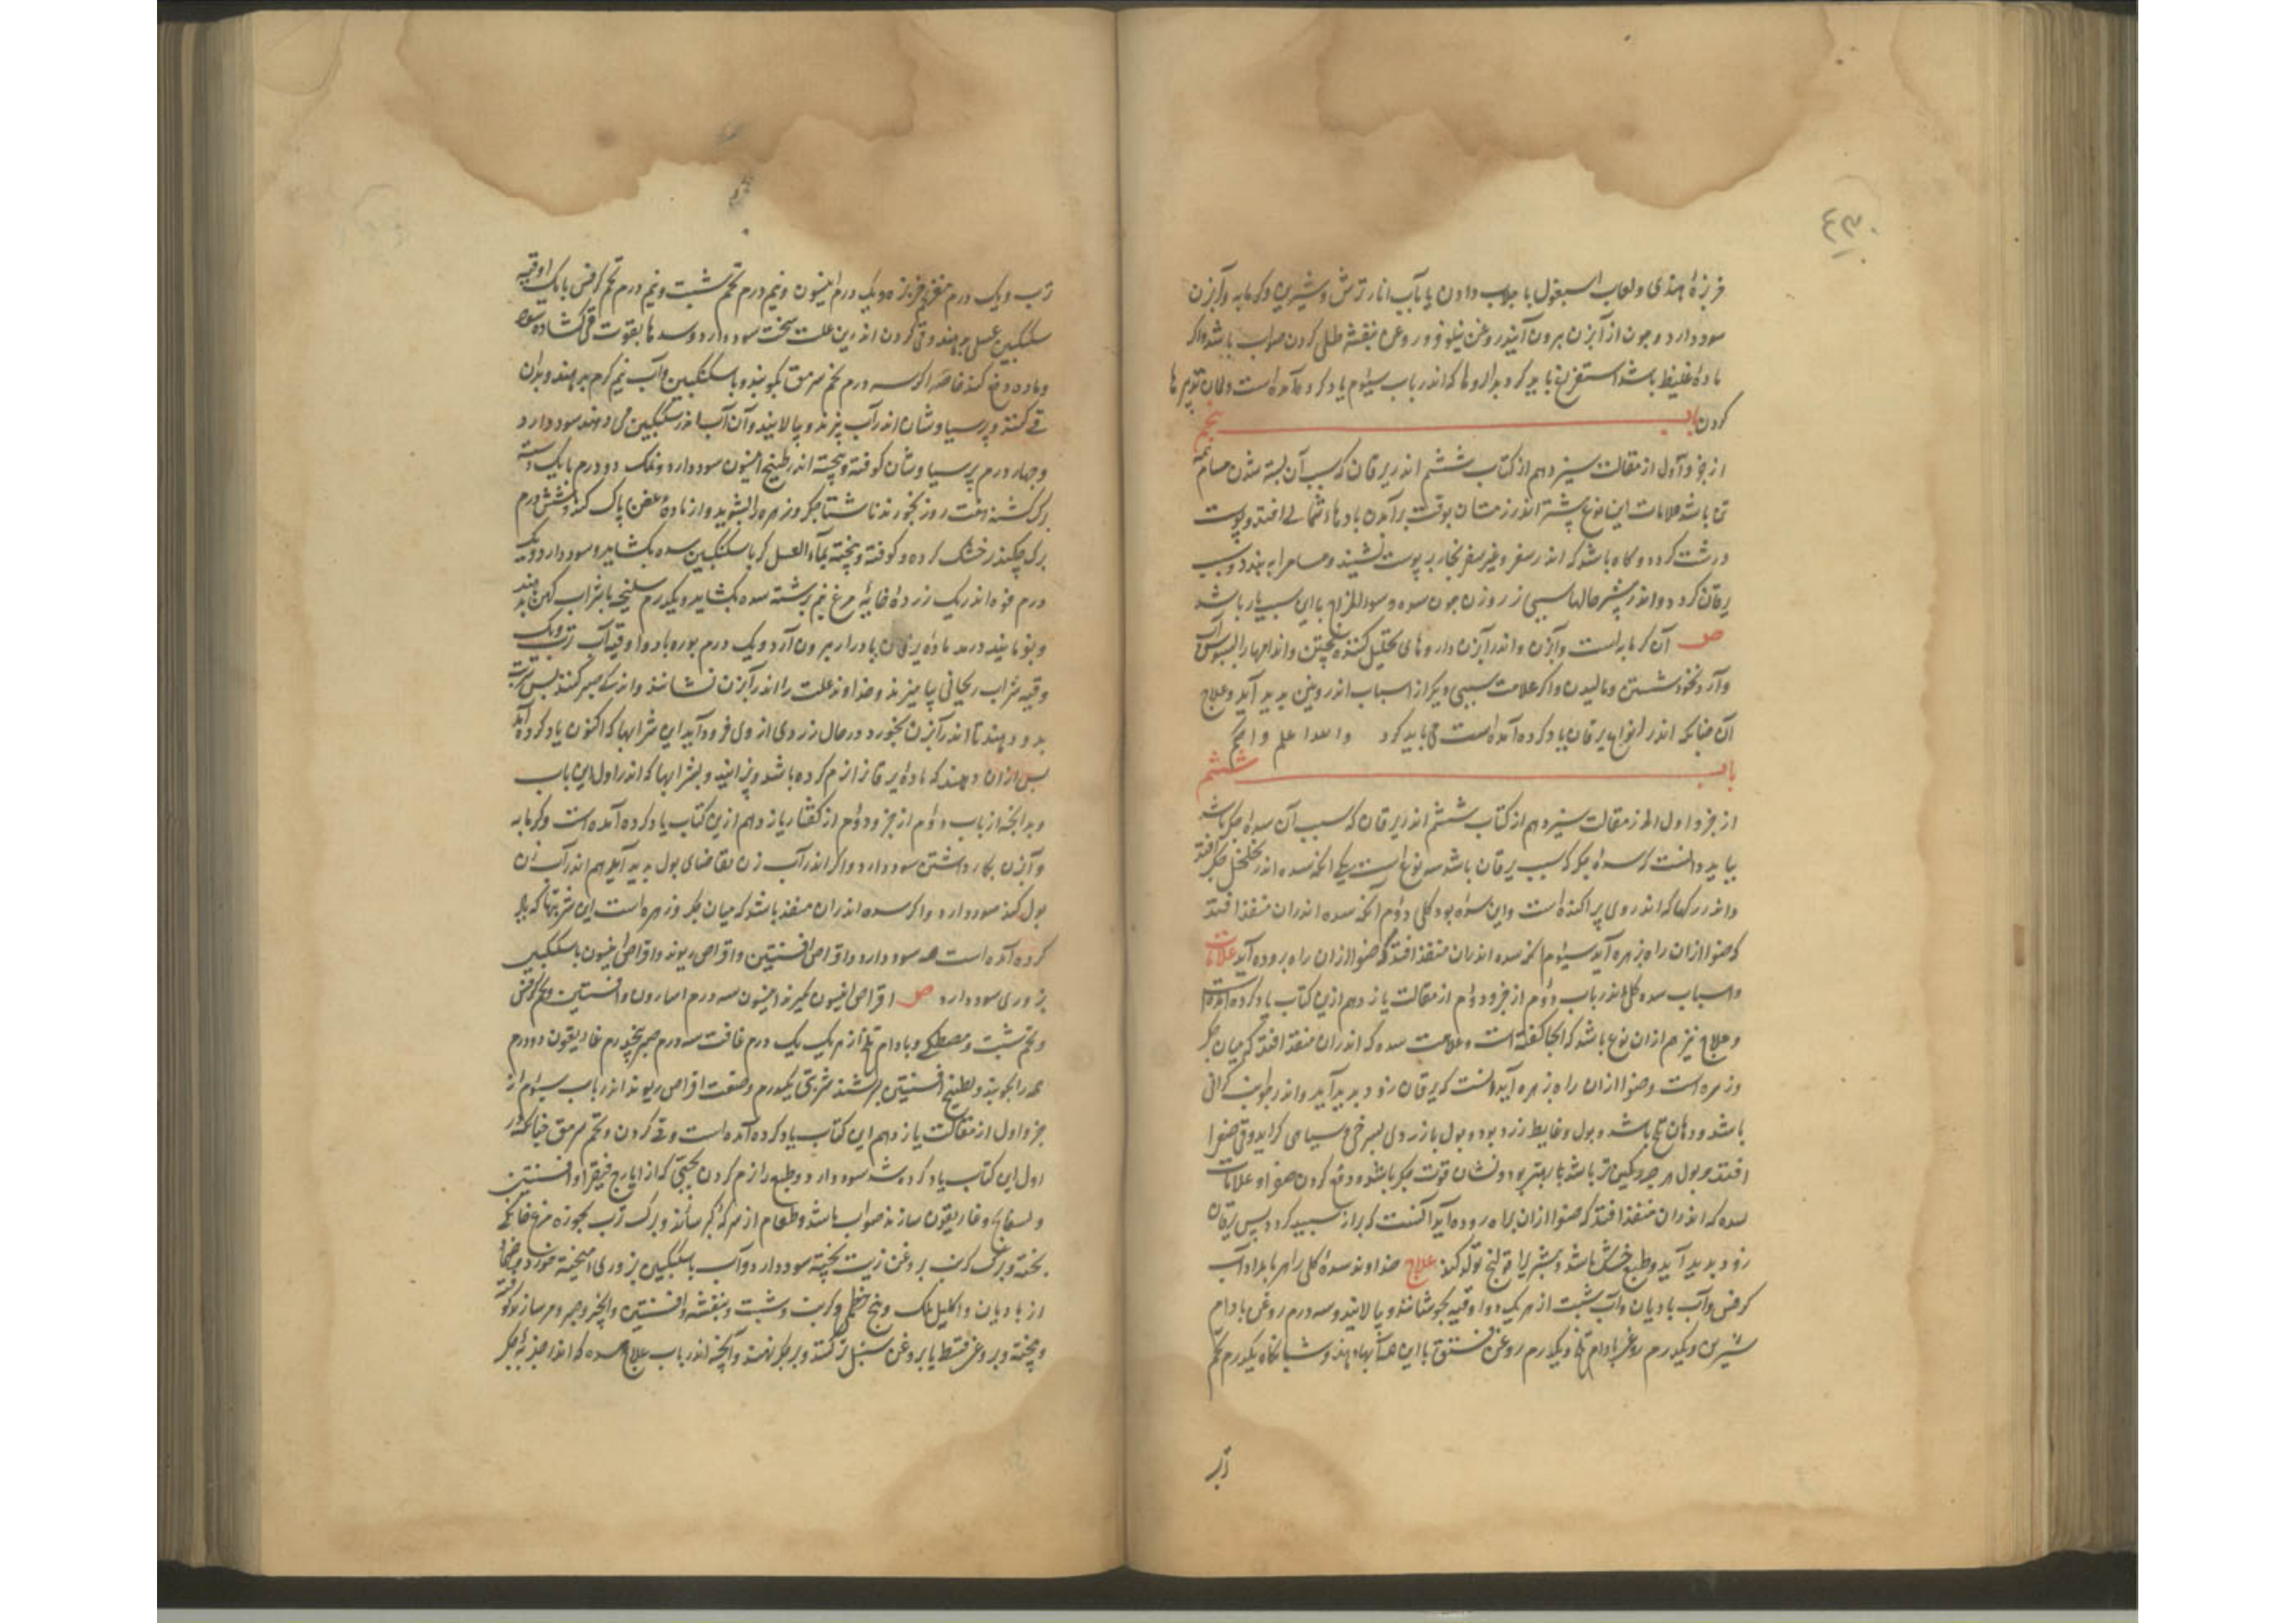 خربزهٔ هندی و لعاب اسبغول با جلاب دادن یا بآب انار ترش و شیرین و کرمابه و آبزن
سود دارد و جون از آبزن برون آید روغن نیلوفر و روغن بنفشه طلی کردن صواب باشد و اکر
مادهٔ غلیظ باشد استفراغ باید کرد بداروها که اندر باب سیّوم یاد کرده آمده است و همان تدبیرها
کردن باب پنجم
از جزو اول از مقالت سیزدهم از کتاب ششم اندر یرقان که سبب آن بسته شدن مسام همه
تن باشد علامات این نوع بیشتر اندر زمستان بوقت برآمدن بادهاء شمالی افتد و پوست
درشت کردد و کاه باشد که اندر سفر و غیر سفر بخار بر پوست نشیند و مسام را به بندد و سبب
یرقان کردد و اندر بیشتر حالها سببی از روزن جون سده و سوء المزاج با این سبب یار باشد
آن کرمابه است و آبزن و اندر آبزن داروهای تحلیل کننده پختن و اندامها را بسبوس آب
و آرد نخود شستن و مالیدن و اکر علامت سببی دیکر از اسباب اندرونین پدید آید و علاج
آن جنانکه اندر انواع یرقان یاد کرده آمده است می باید کرد والله اعلم واحکم
باب ششم
از جزو اول از مقالت سیزدهم از کتاب ششم اندر یرقان که سبب آن سدهٔ جکر باشد
بباید دانست که سدهٔ جکر که سبب یرقان باشد سه نوع است یکی انکه سده اندر خلخل جکر افتد
و اندر رکها که اندر وی پراکنده است و این سده بود کلی دوّم آنکه سده اندران منفذ افتد
که صفرا ازان راه بزهره آید سیّوم انکه سده اندران منفذ افتد که صفرا ازان راه بروده آید علامات
و اسباب سده کلی اندر باب دوّم از جزو دوّم از مقالت یازدهم ازین کتاب یاد کرده آمده است
و علاج نیز هم ازان نوع باشد که انجا کفته است و علامت سده که اندران منفذ افتد که میان جکر
و زهره است و صفرا ازان راه بزهره آید انست که یرقان زود پدید آید و اندر جانب کرانی
باشد و دهان تلخ باشد و بول و غایط زرد بود و بول با زردی بسرخی و سیاهی کراید و قی صفرا
افتد و بول هر جه رنکین تر باشد بهتر بود و نشان قوت جکر باشد و دفع کردن صفرا و علامات
سده که اندران منفذ افتد که صفرا ازان براه روده آید آنست که براز سپید کردد پس یرقان
زود پدید آید و طبع خشک باشد و بیشتر را قولنج تولد کند علاج خداوند سدهٔ کلی را هر بامداد آب
کرفس و آب بادیان و آب شبت از هر یک دو اوقیه بجوشانند و پالایند و سه درم روغن بادام
شیرین و یکدرم روغن بادام تلخ و یکدرم روغن فستق با این همه آبها دهند و شبانکاه یکدرم تخم
ترب
ترب و یک درم مغز تخم خربزه و یک درم انیسون و نیم درم تخم شبت و نیم درم تخم کرفس با یک اوقیه
سکنکبین عسلی بدهند و قی کردن اندرین علت سخت سود دارد و سدها بقوت قی کشاده شود
و ماده دفع کند خاصه اکر سه درم تخم سرمق بکوبند و با سکنکبین و آب نیم کرم بدهند و بدان
قی کنند و پرسیاوشان اندر آب پزند و پالایند و آن آب اندر سکنکبین می دهند سود دارد
و جهار درم پرسیاوشان کوفته و پخته اندر طبیخ انیسون سود دارد و نمک دو درم با یک دسته
برک کشنه هفت روز بخورند ناشتا جکر و زهره را بشوید و از مادهٔ عفن پاک کند و شش درم
برک جکندر خشک کرده و کوفته و پخته بماء العسل کر با سکنکبین سده بکشاید و سود دارد و یک
درم فوه اندر یک زردهٔ خایهٔ مرغ نیم برشته سده بکشاید و یکدرم سلیخه با شراب کهن بدهند
و یک درم بوره با دو اوقیه آب ترب و یک
وقیه شراب ریحانی بیامیزند و خداوند علت را اندر آبزن نشانند و اندکی صبر کنند پس شربت
بدو دهند تا اندر آبزن بخورد در حال زردی از وی فرود آید این شرابها که اکنون یاد کرده آید
پس ازان دهند که مادهٔ یرقان را نرم کرده باشد و پزانیده بشرابها که اندر اول این باب
و بدانجه از باب دوّم از جزو دوّم از کفتار یازدهم ازین کتاب یاد کرده آمده است و کرمابه
و آبزن بکار داشتن سود دارد و اکر اندر آب زن تقاضای بول پدید آید هم اندر آب زن
بول کند سود دارد و اکر سده اندران منفذ باشد که میان جکر و زهره است این شربتها که یاد
کرده آمده است همه سود دارد و اقراص افسنتین و اقراص ریوند و اقراص انیسون با سکنکبین
بزوری سود دارد اقراص انیسون بکیرند انیسون سه درم اسارون و افسنتین و تخم کرفس
و تخم شبت و مصطکی و بادام تلخ از هر یک یک درم غافت سه درم صبر پنجدرم غاریقون دو درم
همه را بکوبند و بطبیخ افسنتین بسرشند شربتی یکدرم و صنعت اقراص ریوند اندر باب سیّوم از
جزو اول از مقالت یازدهم این کتاب یاد کرده آمده است و قی کردن و تخم سرمق جنانکه در
اول این کتاب یاد کرده شد سود دارد و طبع را نرم کردن بحبی که از ایارج فیقرا و افسنتین
و بسفایج و غاریقون سازند صواب باشد و طعام از سرکه و کبر سازند و برک ترب بجوزه مرغ خانکی
پخته و برک کرنب بروغن زیت پخته سود دارد و آب با سکنکبین بزوری آمیخته خورد و ضماد
از بادیان و اکلیل ملک و بنج خطمی و کرنب و شبت و بنفشه و افسنتین و انجیر و صبر و مر سازند کوفته
و پخته و بروغن قسط یا بروغن سنبل تر کنند و بر جکر نهند و آنجه اندر باب علاج سده که اندر حدبهٔ جکر